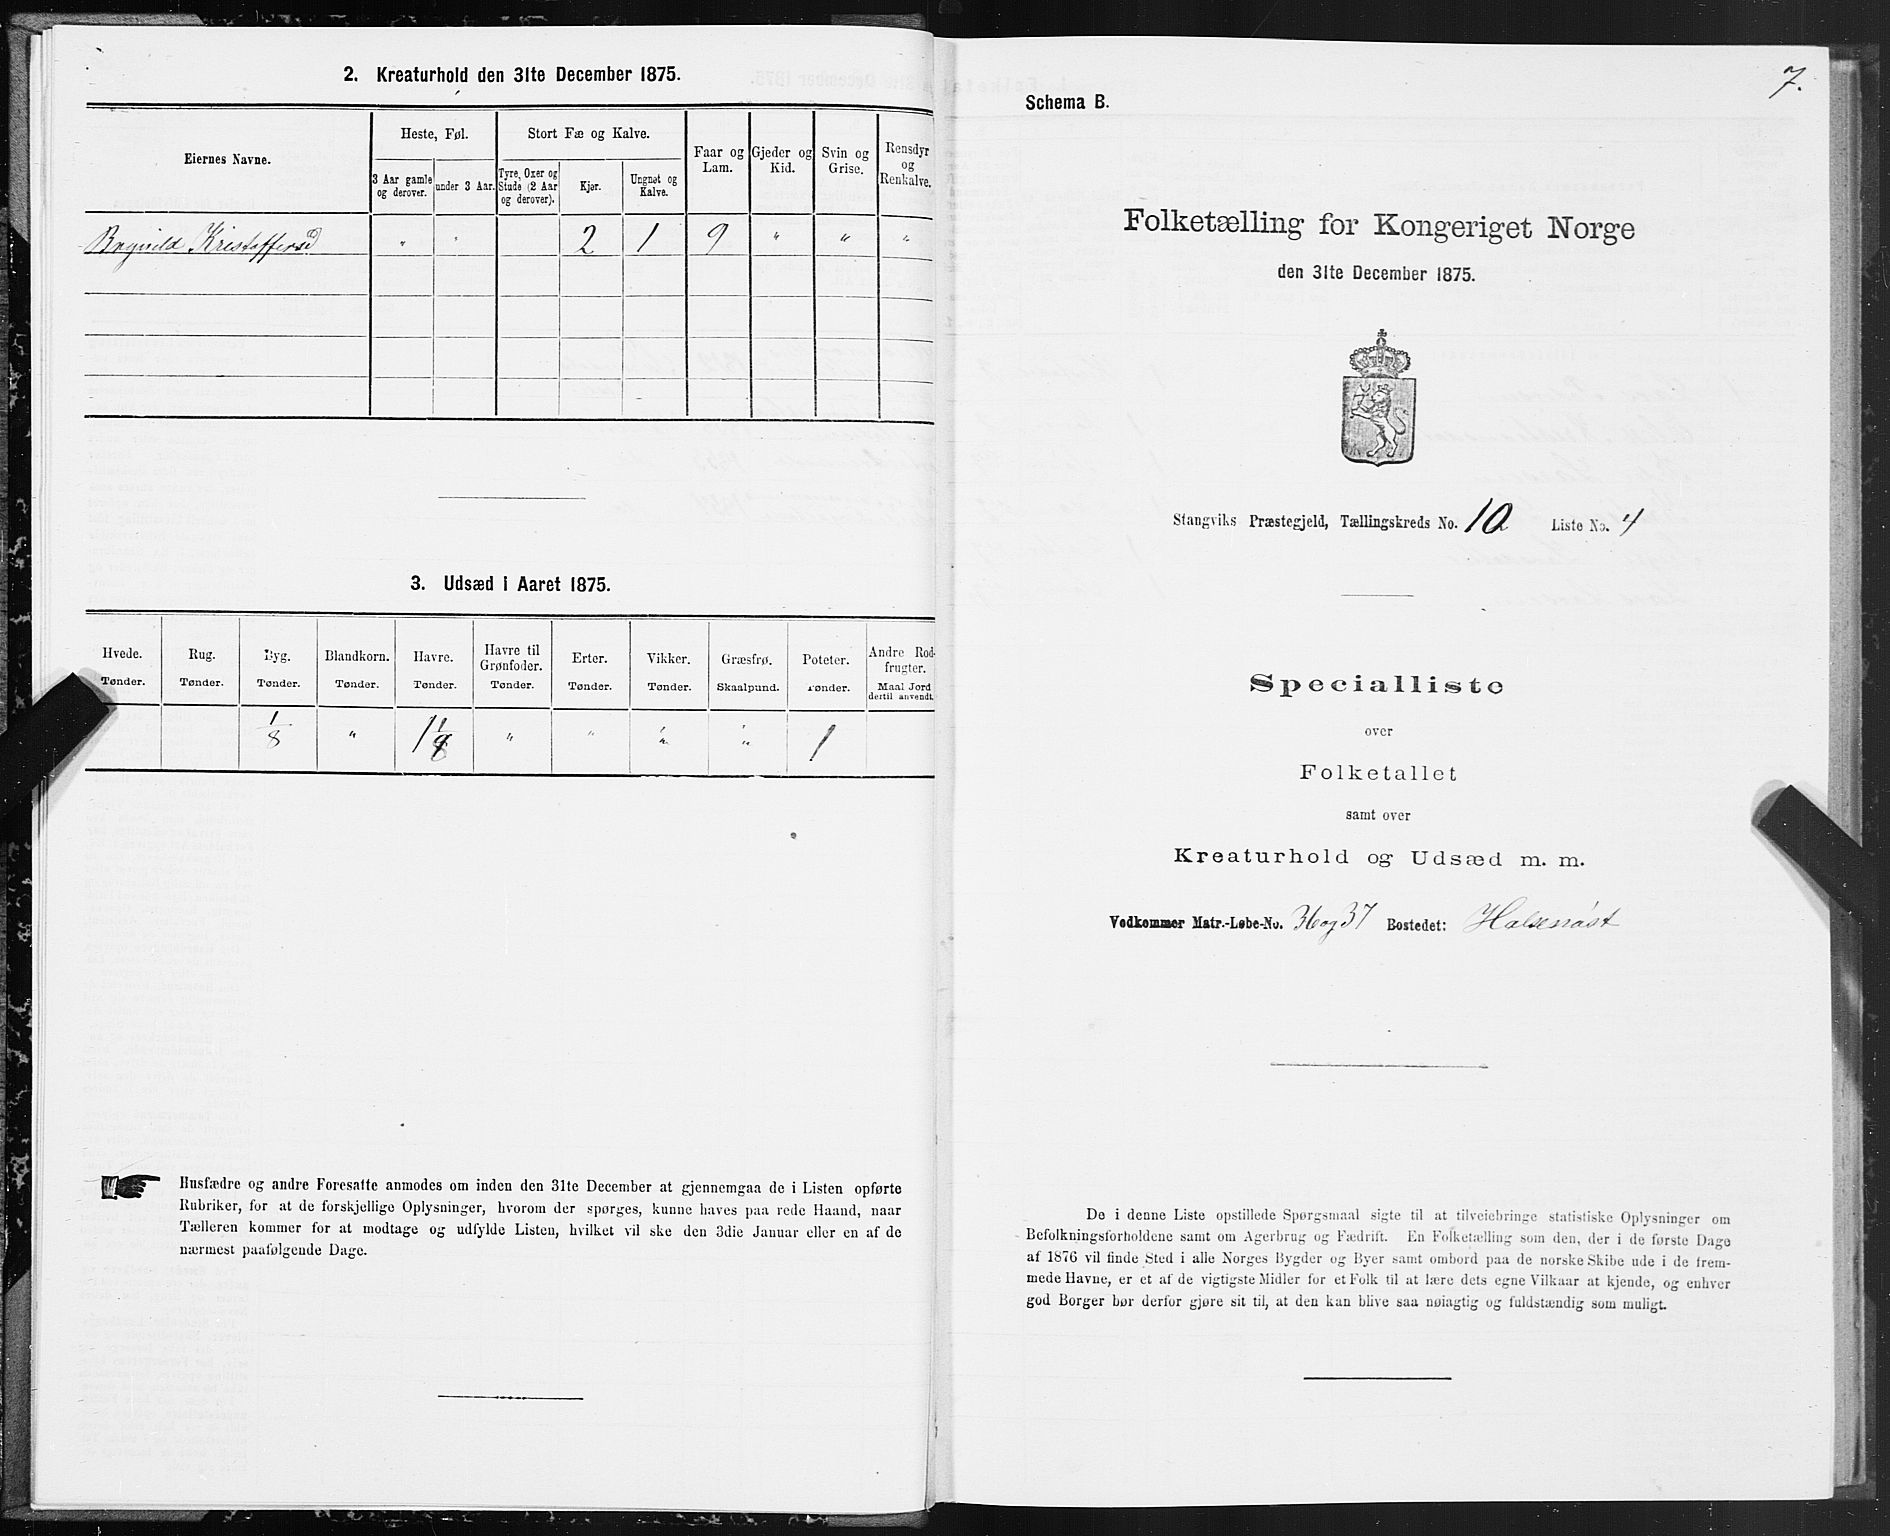 2. Kreaturhold den 31te December 1875.
Eiernes Navne.
Heste, Føl.
Stort Fæ og Kalve.
Faar og Lam.
Gjeder og Kid.
Svin og Grise.
Rensdyr og Renkalve.
3 Aar gamle og derover.
under 3 Aar.
Tyre, Oxer og Stude (2 Aar og derover).
Kjør.
Ungnøt og Kalve.
Kristoffersd " " 2 1 9 " " "
3. Udsæd i Aaret 1875.
Hvede. Rug. Byg. Blandkorn. Havre. Havre til Grønfoder. Erter. Vikker. Græsfrø. Poteter. Andre Rodfrugter.
Tønder. Tønder. Tønder. Tønder. Tønder. Tønder. Tønder. Tønder. Skaalpund. Tønder. Maal Jord dertil anvendt.
1/8 " 1 1/8 " " " " 1
Husfædre og andre Foresatte anmodes om inden den 31te December at gjennemgaa de i Listen opførte
Rubriker, for at de forskjellige Oplysninger, hvorom der spørges, kunne haves paa rede Haand, naar
Tælleren kommer for at modtage og udfylde Listen, hvilket vil ske den 3die Januar eller en af de
nærmest paafølgende Dage.
7.
Schema B.
Folketælling for Kongeriget Norge
den 31te December 1875.
Stangviks Præstegjeld, Tællingskreds No. 10 Liste No. 4
Specialliste
over
Folketallet
samt over
Kreaturhold og Udsæd m. m.
Vedkommer Matr.-Løbe-No. 36 og 37 Bostedet: Halsenøst
De i denne Liste opstillede Spørgsmaal sigte til at tilveiebringe statistiske Oplysninger om
Befolkningsforholdene samt om Agerbrug og Fædrift. En Folketælling som den, der i de første Dage
af 1876 vil finde Sted i alle Norges Bygder og Byer samt ombord paa de norske Skibe ude i de frem-
mede Havne, er et af de vigtigste Midler for et Folk til at lære dets egne Vilkaar at kjende, og enhver
god Borger bør derfor gjøre sit til, at den kan blive saa nøiagtig og fuldstændig som muligt.